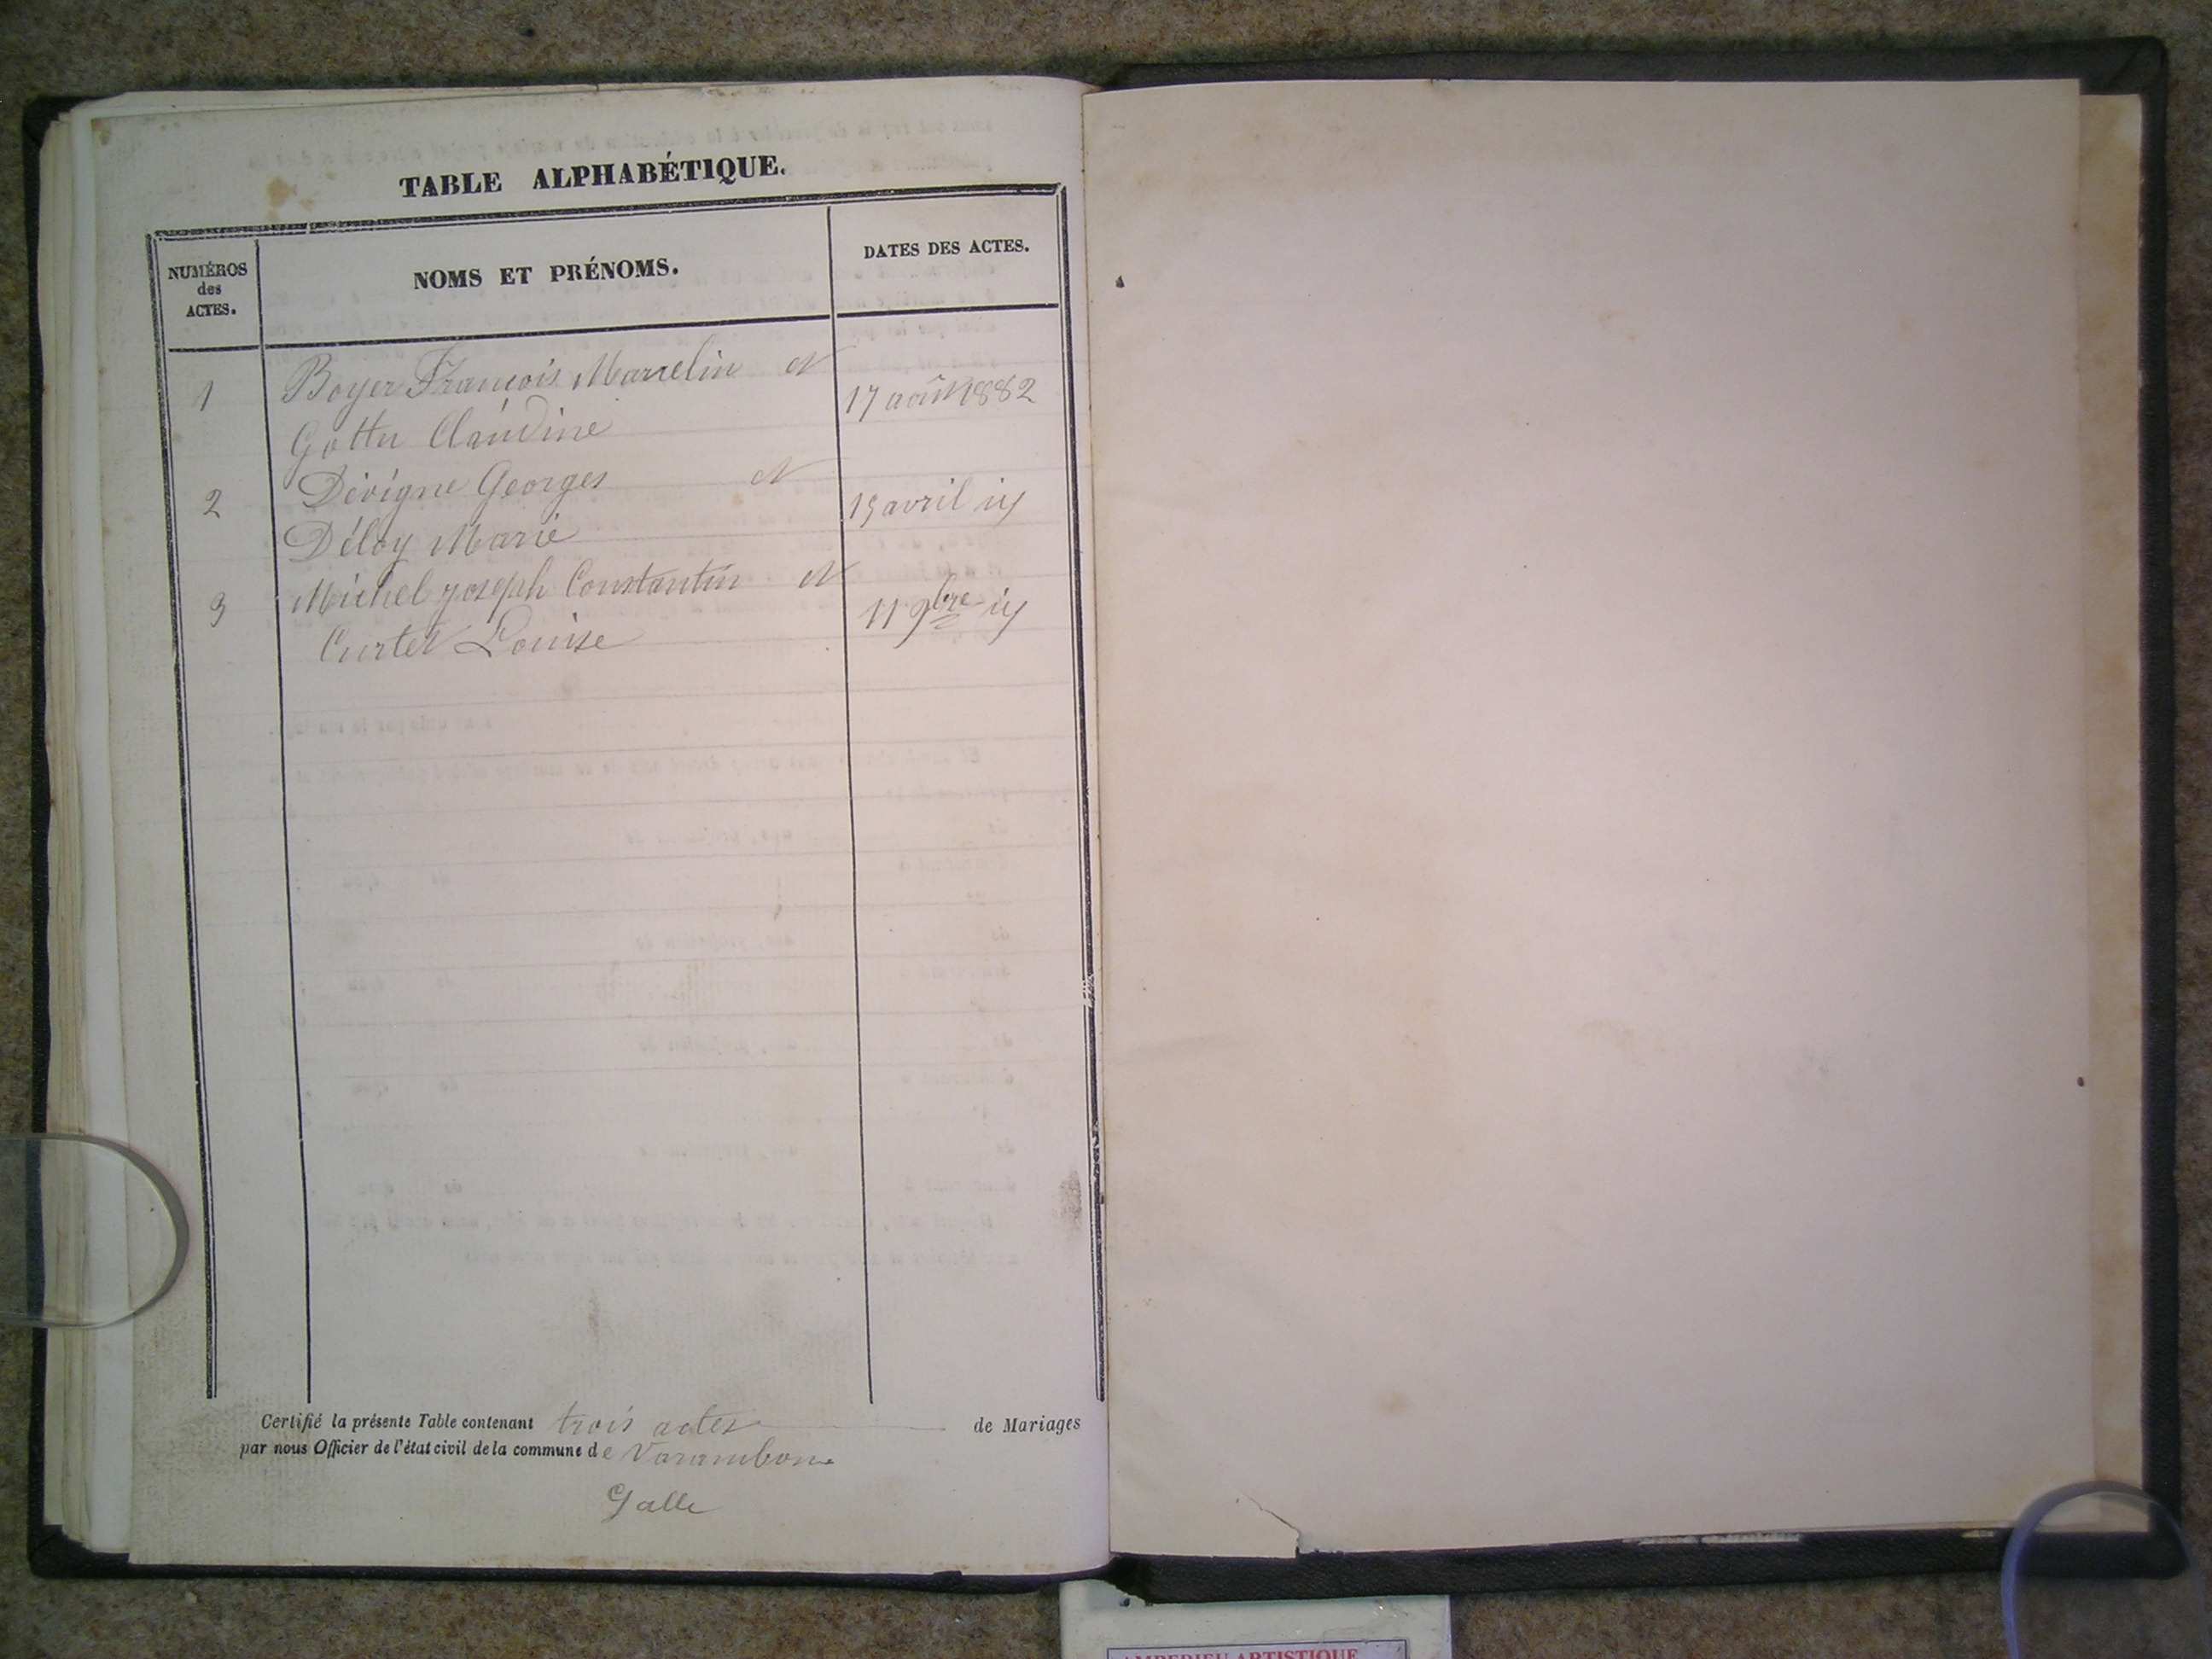 TABLE ALPHABÉTIQUE.
NUMÉROS des ACTES.
NOMS ET PRÉNOMS.
DATES DES ACTES.
1 Boyer François Marcelin et
Gottu Claudine
17 août 1882
2 Dévigne Georges et
Déloy Marie
15 avril id
3 Michel Joseph Constantin et
Curtet Louise
11 9bre id
Certifié la présente Table contenant trois actes de Mariages
par nous Officier de l'état civil de la commune de Varambon
Galle
AMBERIEU ARTISTIQUE